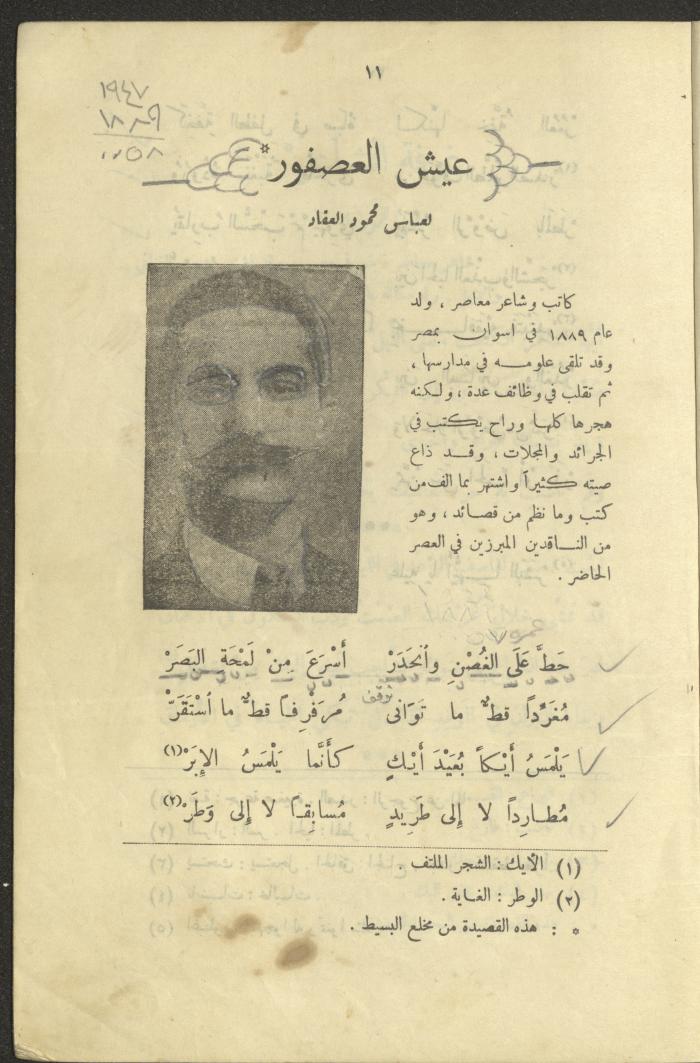 ١١
١٩٤٧
١٨٨٩
٠٠٥٨
عيش العصفور*
لعباس محمود العقاد
كاتب وشاعر معاصر ، ولد
عام ١٨٨٩ في اسوان بمصر
وقد تلقى علومه في مدارسها ،
ثم تقلب في وظائف عدة ، ولكنه
هجرها كلها وراح يكتب في
الجرائد والمجلات ، وقد ذاع
صيته كثيراً واشتهر بما الف من
كتب وما نظم من قصائد ، وهو
من الناقدين المبرزين في العصر
الحاضر .
حَطَّ عَلَى الغُصْنِ وأنْحَدَرْ أَسْرَعَ مِنْ لَمْحَةِ البَصَرْ
توقف
مُغَرِّداً قطُّ ما تَوَانى مُرَفْرِفاً قطُّ ما أسْتَقَرّْ
يَلْمَسُ أَيْكاً بُعَيْدَ أَيْكٍ كأَنَّما يَلْمَسُ الإِبَرْ (١)
مُطارِداً لا إلى طَرِيدٍ مُسابِقاً لا إلى وَطَرْ (٢)
(١) الأيك : الشجر الملتف .
(٢) الوطر : الغاية .
* : هذه القصيدة من مخلع البسيط .